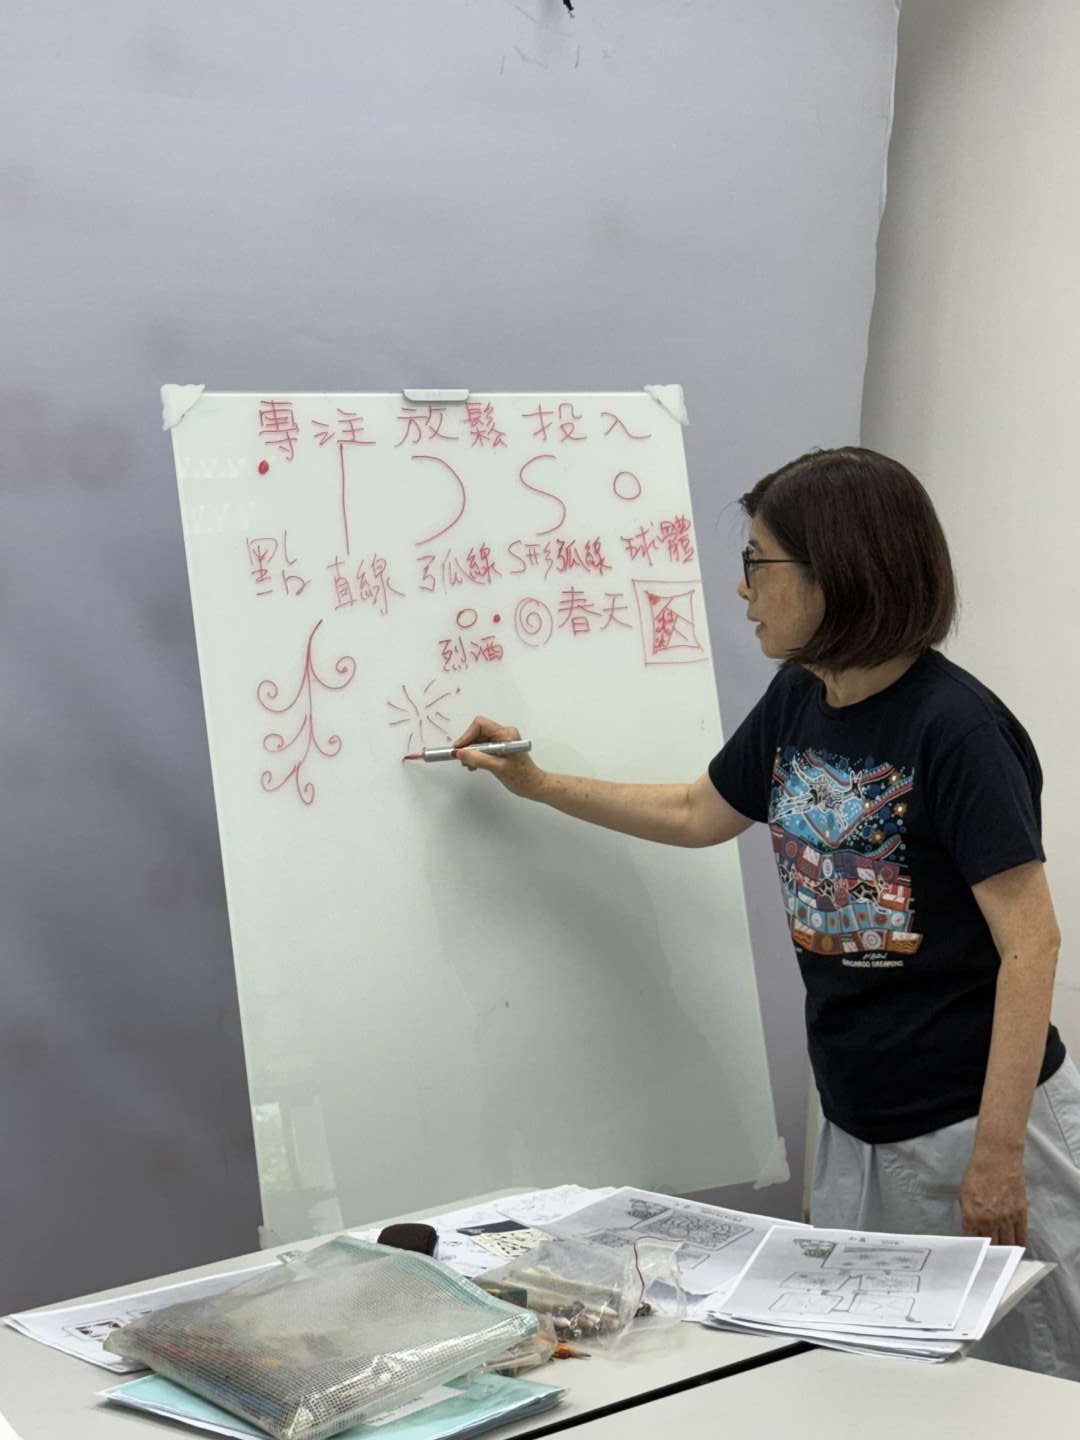 專注 放鬆 投入
點 直線 弧線 S形弧線 球體
春天
烈酒